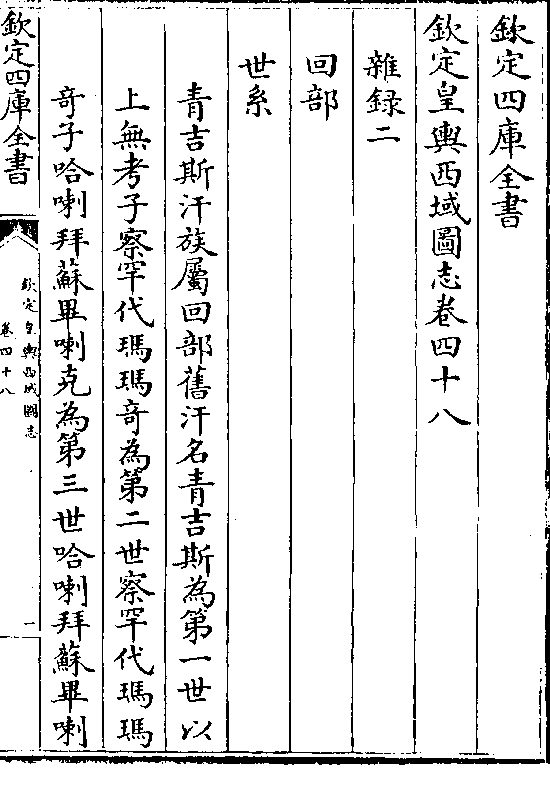 欽定四庫全書
欽定皇輿西域圖志卷四十八
雜録二
回部
世系
青吉斯汗族屬回部舊汗名青吉斯為第一世以
上無考子察罕代瑪瑪竒為第二世察罕代瑪瑪
竒子哈喇拜蘇畢喇克為第三世哈喇拜蘇畢喇
欽定四庫全書
欽定皇輿西域圖志
卷四十八
一